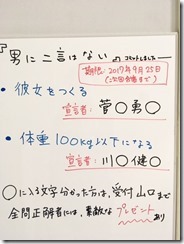 『男に二言はない』
コミットしました
期限：2017年9月25日
（次回会議まで）
・彼女をつくる
宣言者：菅〇勇〇
・体重100kg以下になる
宣言者：川〇健〇
〇に入る文字分かった方は、受付山口まで
全問正解者には、素敵なプレゼントあり